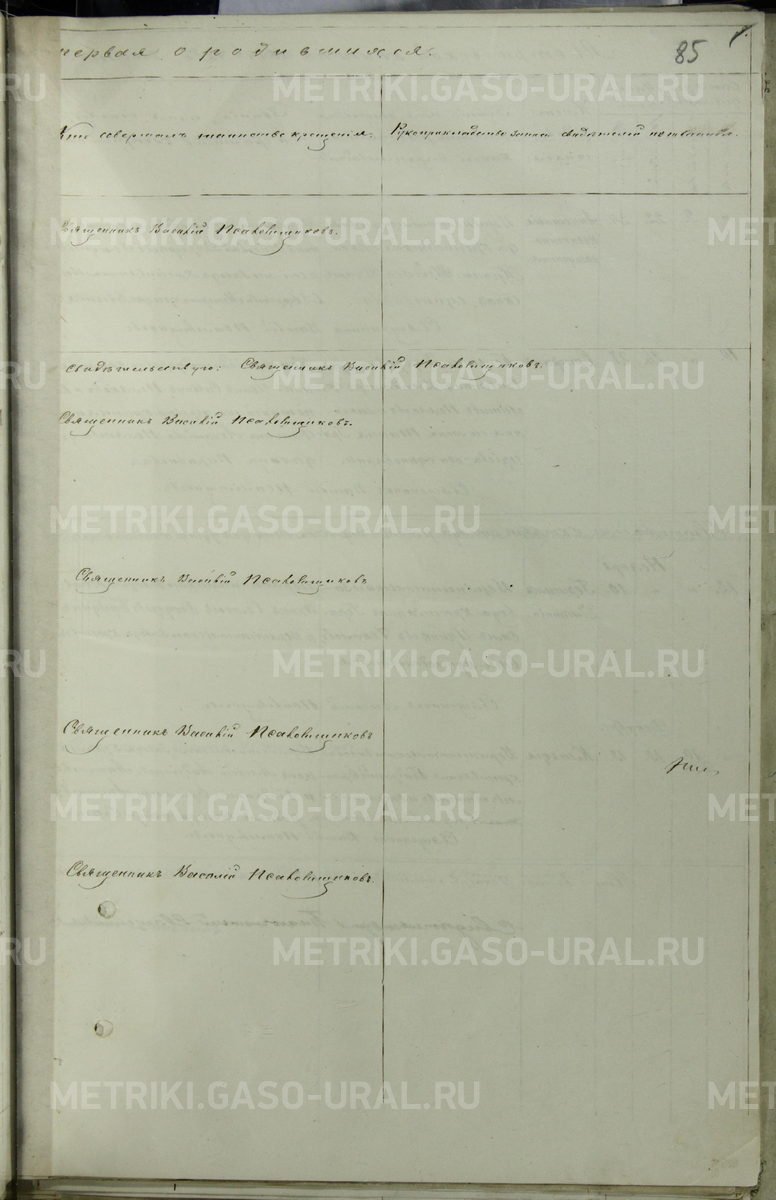 первая о родившихся.
85
Кто совершалъ таинство крещенія.
Рукоприкладство записи свидѣтелей по желанію.
Священникъ Василій Исаковщиковъ.
свидѣтельствую: Священникъ Василій Исаковщиковъ.
Священникъ Василій Исаковщиковъ.
Священникъ Василій Исаковщиковъ
Священникъ Василій Исаковщиковъ
Священникъ Василій Исаковщиковъ.
METRIKI.GASO-URAL.RU